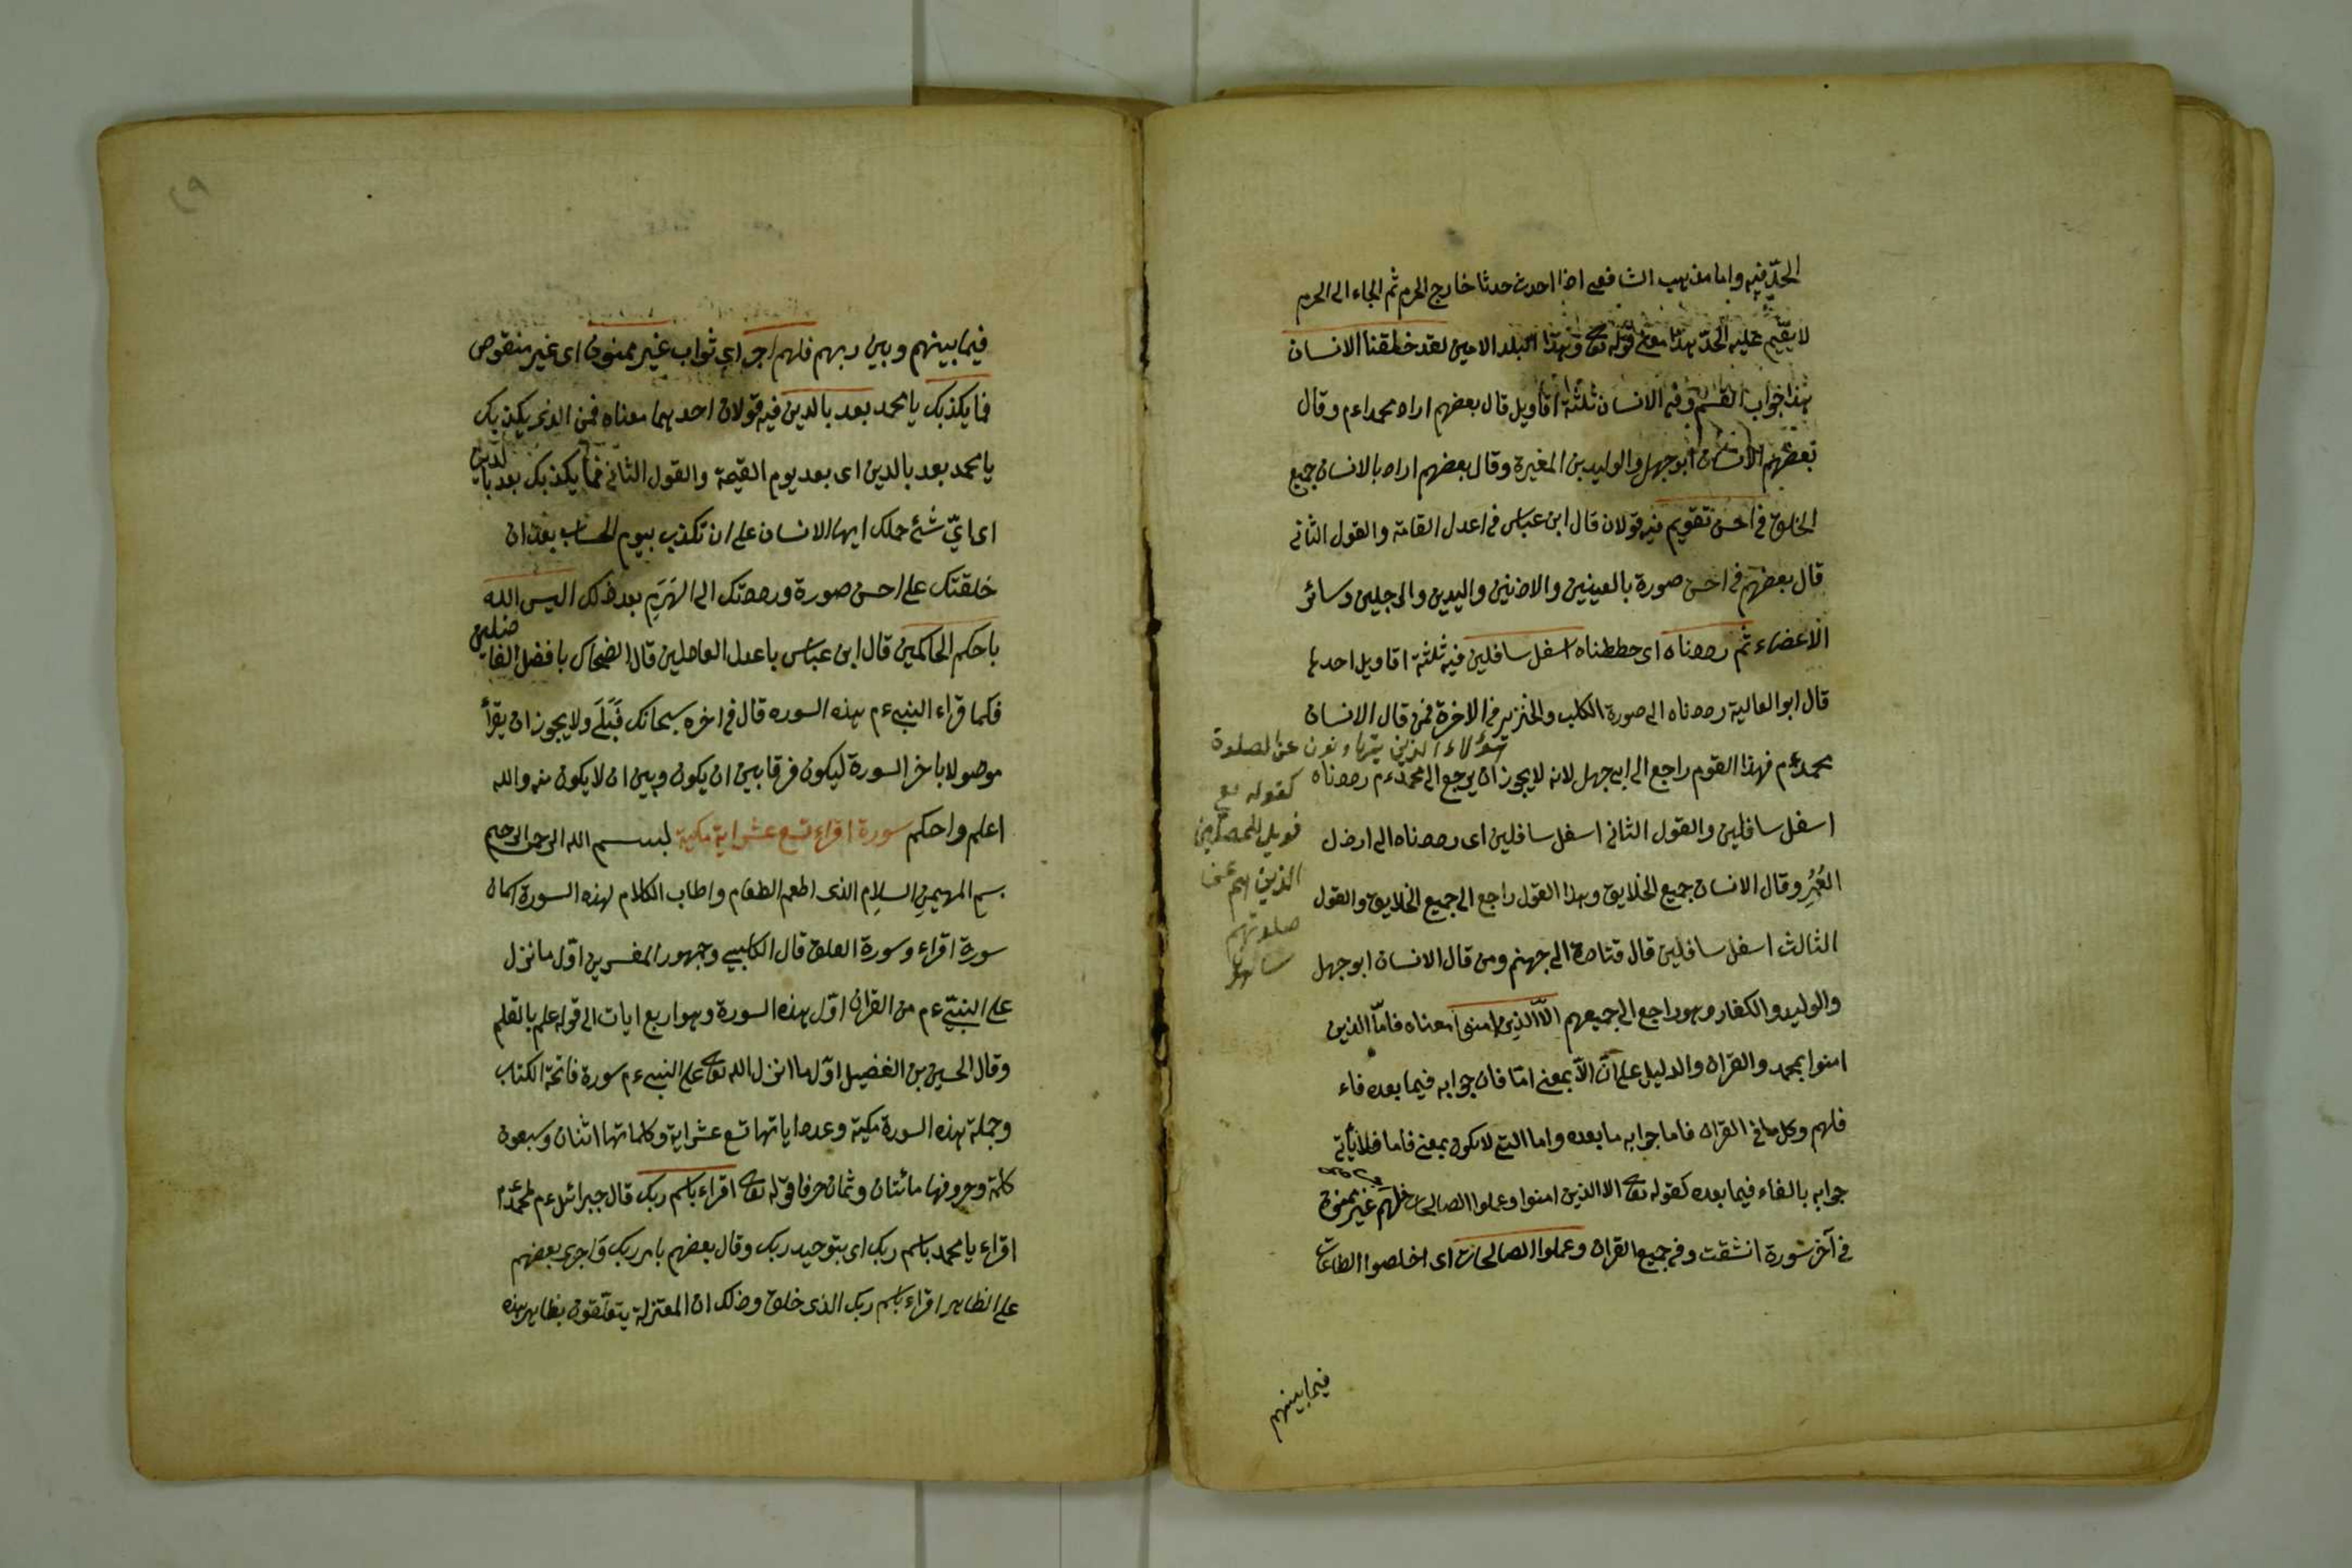 الحدّ فيه واما مذهب الشافعى اذا احدث حدثا خارج الحرم ثم الجاء الى الحرم
لا يقيم عليه الحدّ هذا معنى قوله تعالى وهذا البلد الامين لقد خلقنا الانسان
هذا جواب القسم وفى الانسان ثلثة اقاويل قال بعضهم اراد محمداءم وقال
بعضهم الانسان ابوجهل والوليد بن المغيرة وقال بعضهم اراد بالانسان جميع
الخلايق فى احسن تقويم فيه قولان قال ابن عباس فى اعدل القامة والقول الثانى
قال بعضهم فى احسن صورة بالعينين والاذنين واليدين والرجلين وسائر
الاعضاء ثم رددناه اى حططناه اسفل سافلين فيه ثلثة اقاويل احدها
قال ابو العالية رددناه الى صورة الكلب والخنزير فى الاخرة فمن قال الانسان
محمدءم فهذا القوم راجع الى ابى جهل لانه لا يجوز ان يرجع الى محمدءم رددناه
اسفل سافلين والقول الثانى اسفل سافلين اى رددناه الى ارذل
العُمُرِ وقال الانسان جميع الخلايق وهذا القول راجع الى جميع الخلايق والقول
الثالث اسفل سافلين قال قتادة الى جهنم ومن قال الانسان ابو جهل
والوليد والكفار وهو راجع الى جميعهم الاّ الذين امنوا معناه فامّا الذين
امنوا بمحمد والقران والدليل على انّ الاّ بمعنى امّا فان جوابه فيما بعده فاء
فلهم وكل ما فى القران فاما جوابه ما بعده واما التى لا تكون بمعنى فاما فلا يأتى
جوابه بالفاء فيما بعده كقوله تعالى الا الذين امنوا وعملوا الصالحات فلهم غير ممنون
فى آخر سورة انشقت وفى جميع القران وعملوا الصالحات اى اخلصوا الطاعات
فيما بينهم
هؤلاء الذين يتهاونون عن الصلوة
كقوله تع
فويل للمصلين
الذين هم عن
صلوتهم
ساهون
فيما بينهم وبين ربهم فلهم اجر اى ثواب غير ممنون اى غير منقوص
فما يكذبك يا محمد بعد بالدين فيه قولان احدهما معناه فمن الذى يكذبك
يا محمد بعد بالدين اى بعد يوم القيمة والقول الثانى فما يكذبك بعد بالدين
اى اىّ شئ حملك ايها الانسان على ان تكذب بيوم الحساب بعد ان
خلقتك على احسن صورة ورددتك الى الهَرَمِ بعد ذلك اليس الله
باحكم الحاكمين قال ابن عباس باعدل العاملين قال الضحاك بافضل الفاضلين
فكما قراء النبىءم هذه السوره قال فى اخره سبحانك فَبَلَى ولا يجوز ان يقرأ
موصولا باخر السورة ليكون فرقا بين ان يكون وبين ان لا يكون منه والله
اعلم واحكم سورة اقراء تسع عشر اية مكية بسم الله الرحمن الرحيم
بسم المهيمن السلام الذى اطعم الطعام واطاب الكلام لهذه السورة اسمان
سورة اقراء وسورة العلق قال الكلبى وجمهور المفسرين اوّل ما نزل
على النبىّءم من القران اوّل هذه السورة وهو اربع ايات الى قوله علم بالقلم
وقال الحسين بن الفضيل اوّل ما انزل الله تعالى على النبىءم سورة فاتحة الكتاب
وجملة هذه السورة مكية وعدد اياتها تسع عشر اية وكلماتها اثنان وسبعون
كلمة وحروفها مائتان وثمان حرفا قوله تعالى اقراء باسم ربك قال جبرائل ءم لمحمدءم
اقراء يا محمد باسم ربك اى بتوحيد ربك وقال بعضهم بامر ربك واجرى بعضهم
على الظاهر اقراء باسم ربك الذى خلق وذلك ان المعتزلة يتعلقون بظاهر هذه